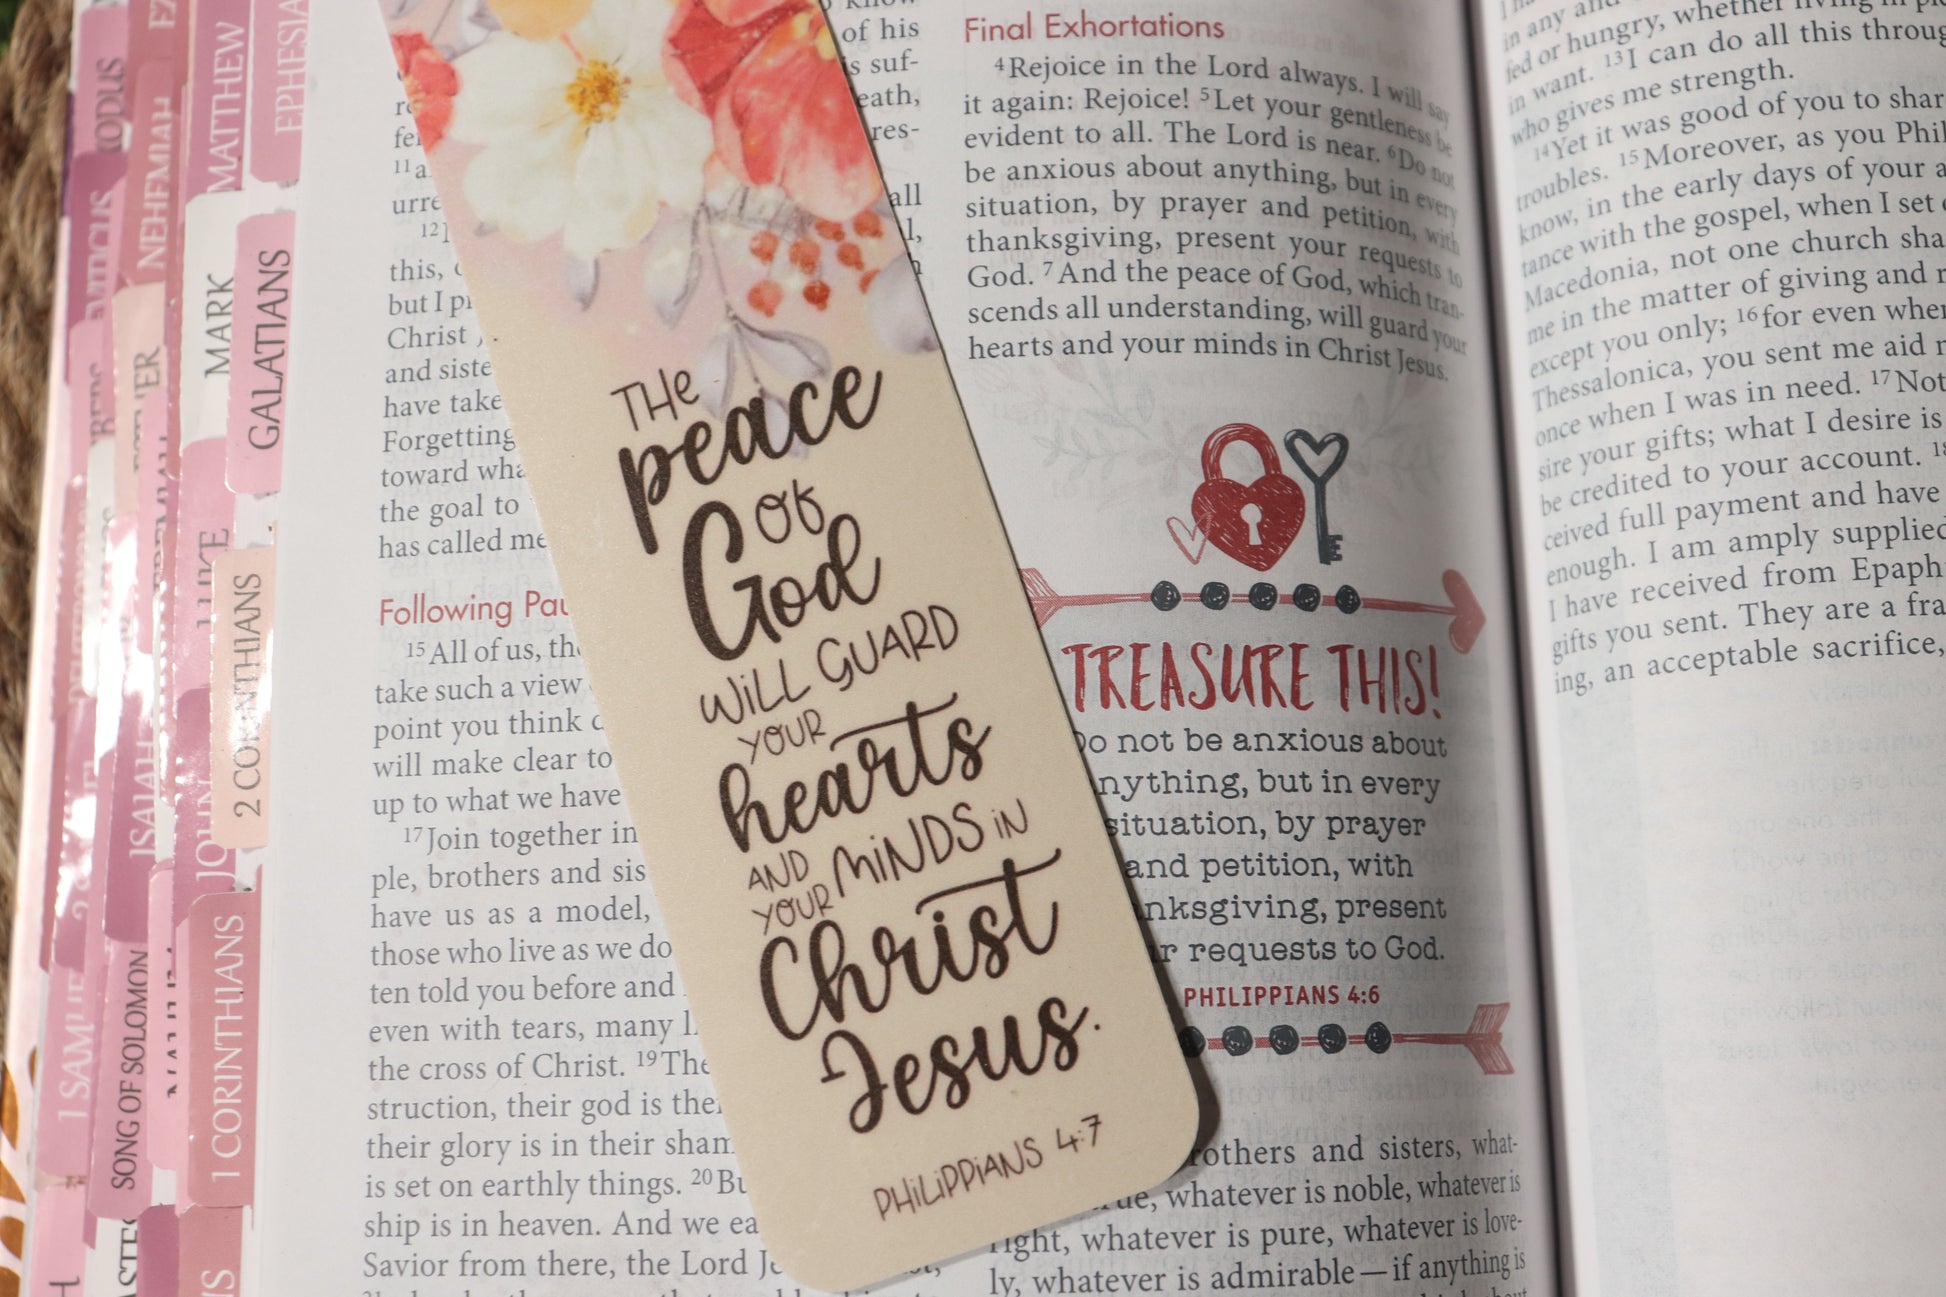 EXODUS
NEHEMIAH
MATTHEW
MARK
GALATIANS
LUKE
2 CORINTHIANS
ISAIAH
JOHN
1 SAMUEL
SONG OF SOLOMON
1 CORINTHIANS
of his
suf-
eath,
res-
11
urre
12
this,
but I
Christ
and siste
have take
Forgetting
toward wha
the goal to
has called me
Following Pau
15 All of us, the
take such a view
point you think
will make clear to
up to what we have
17 Join together in
ple, brothers and sis
have us as a model,
those who live as we do
ten told you before and
even with tears, many
the cross of Christ. 19 The
struction, their god is thei
their glory is in their sham
is set on earthly things. 20 Bu
ship is in heaven. And we ea
Savior from there, the Lord Je
THe
peace
of
God
WiLL GUARD
YOUR
hearts
AND
YOUR MiNDS iN
Christ
Jesus.
PHiLiPPiANS 4:7
Final Exhortations
4 Rejoice in the Lord always. I will say
it again: Rejoice! 5 Let your gentleness be
evident to all. The Lord is near. 6 Do not
be anxious about anything, but in every
situation, by prayer and petition, with
thanksgiving, present your requests to
God. 7 And the peace of God, which tran-
scends all understanding, will guard your
hearts and your minds in Christ Jesus.
TREASURE THIS!
Do not be anxious about
nything, but in every
situation, by prayer
and petition, with
nksgiving, present
r requests to God.
PHILIPPIANS 4:6
rothers and sisters, what-
ue, whatever is noble, whatever is
right, whatever is pure, whatever is love-
ly, whatever is admirable—if anything is
in any and
fed or hungry, whether living in
in want. 13 I can do all this throug
who gives me strength.
14 Yet it was good of you to shar
troubles. 15 Moreover, as you Phil
know, in the early days of your a
tance with the gospel, when I set
Macedonia, not one church sha
me in the matter of giving and r
except you only; 16 for even when
Thessalonica, you sent me aid
once when I was in need. 17 Not
sire your gifts; what I desire is
be credited to your account. 18
ceived full payment and have
enough. I am amply supplied
I have received from Epaph
gifts you sent. They are a fra
ing, an acceptable sacrifice,